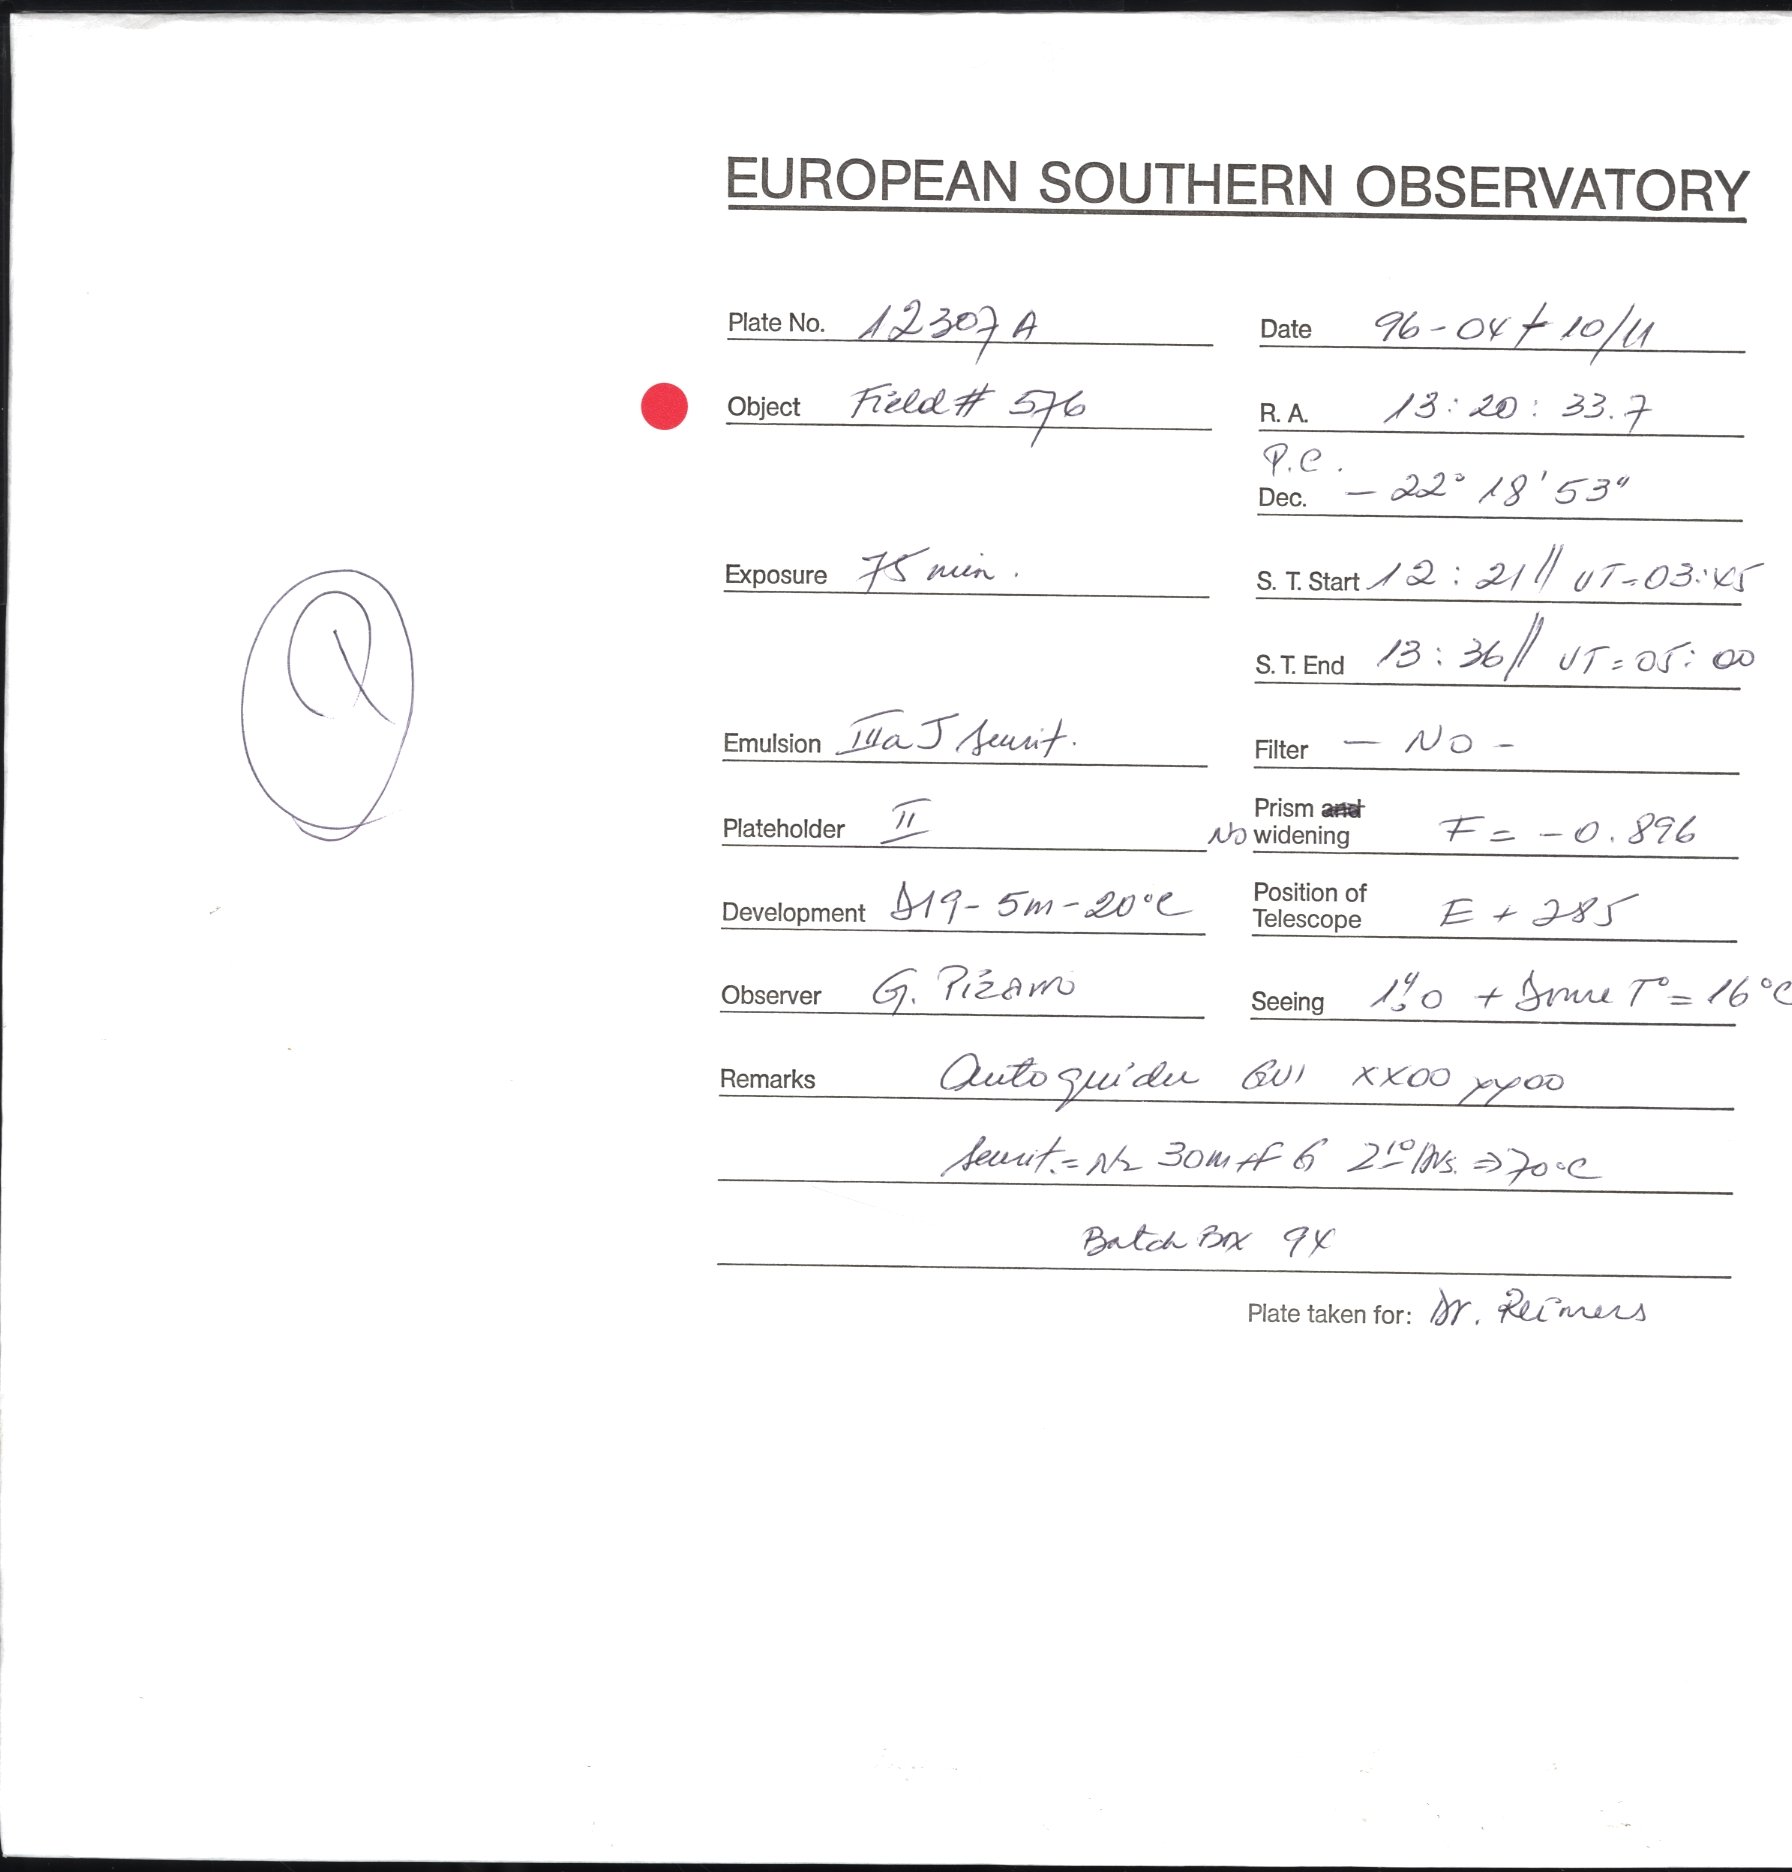 EUROPEAN SOUTHERN OBSERVATORY
Plate No. 12307 A
Date 96-04-10/11
Object Field # 576
R. A. 13 : 20 : 33.7
P.C.
Dec. - 22° 18' 53"
Exposure 75 min.
S. T. Start 12 : 21 // UT=03:45
S. T. End 13 : 36 // UT=05:00
Emulsion IIIa J sensit.
Filter - NO -
Plateholder II
Prism and
No widening F = -0.896
Development D19- 5m- 20°C
Position of
Telescope E + 285
Observer G. Pizarro
Seeing 1".0 + Dome T° = 16°C
Remarks Autoguider GV1 XX00 YY00
sensit.= N2 30m ⇒ 70°C
Batch Box 94
Plate taken for: Dr. Reimers
Q